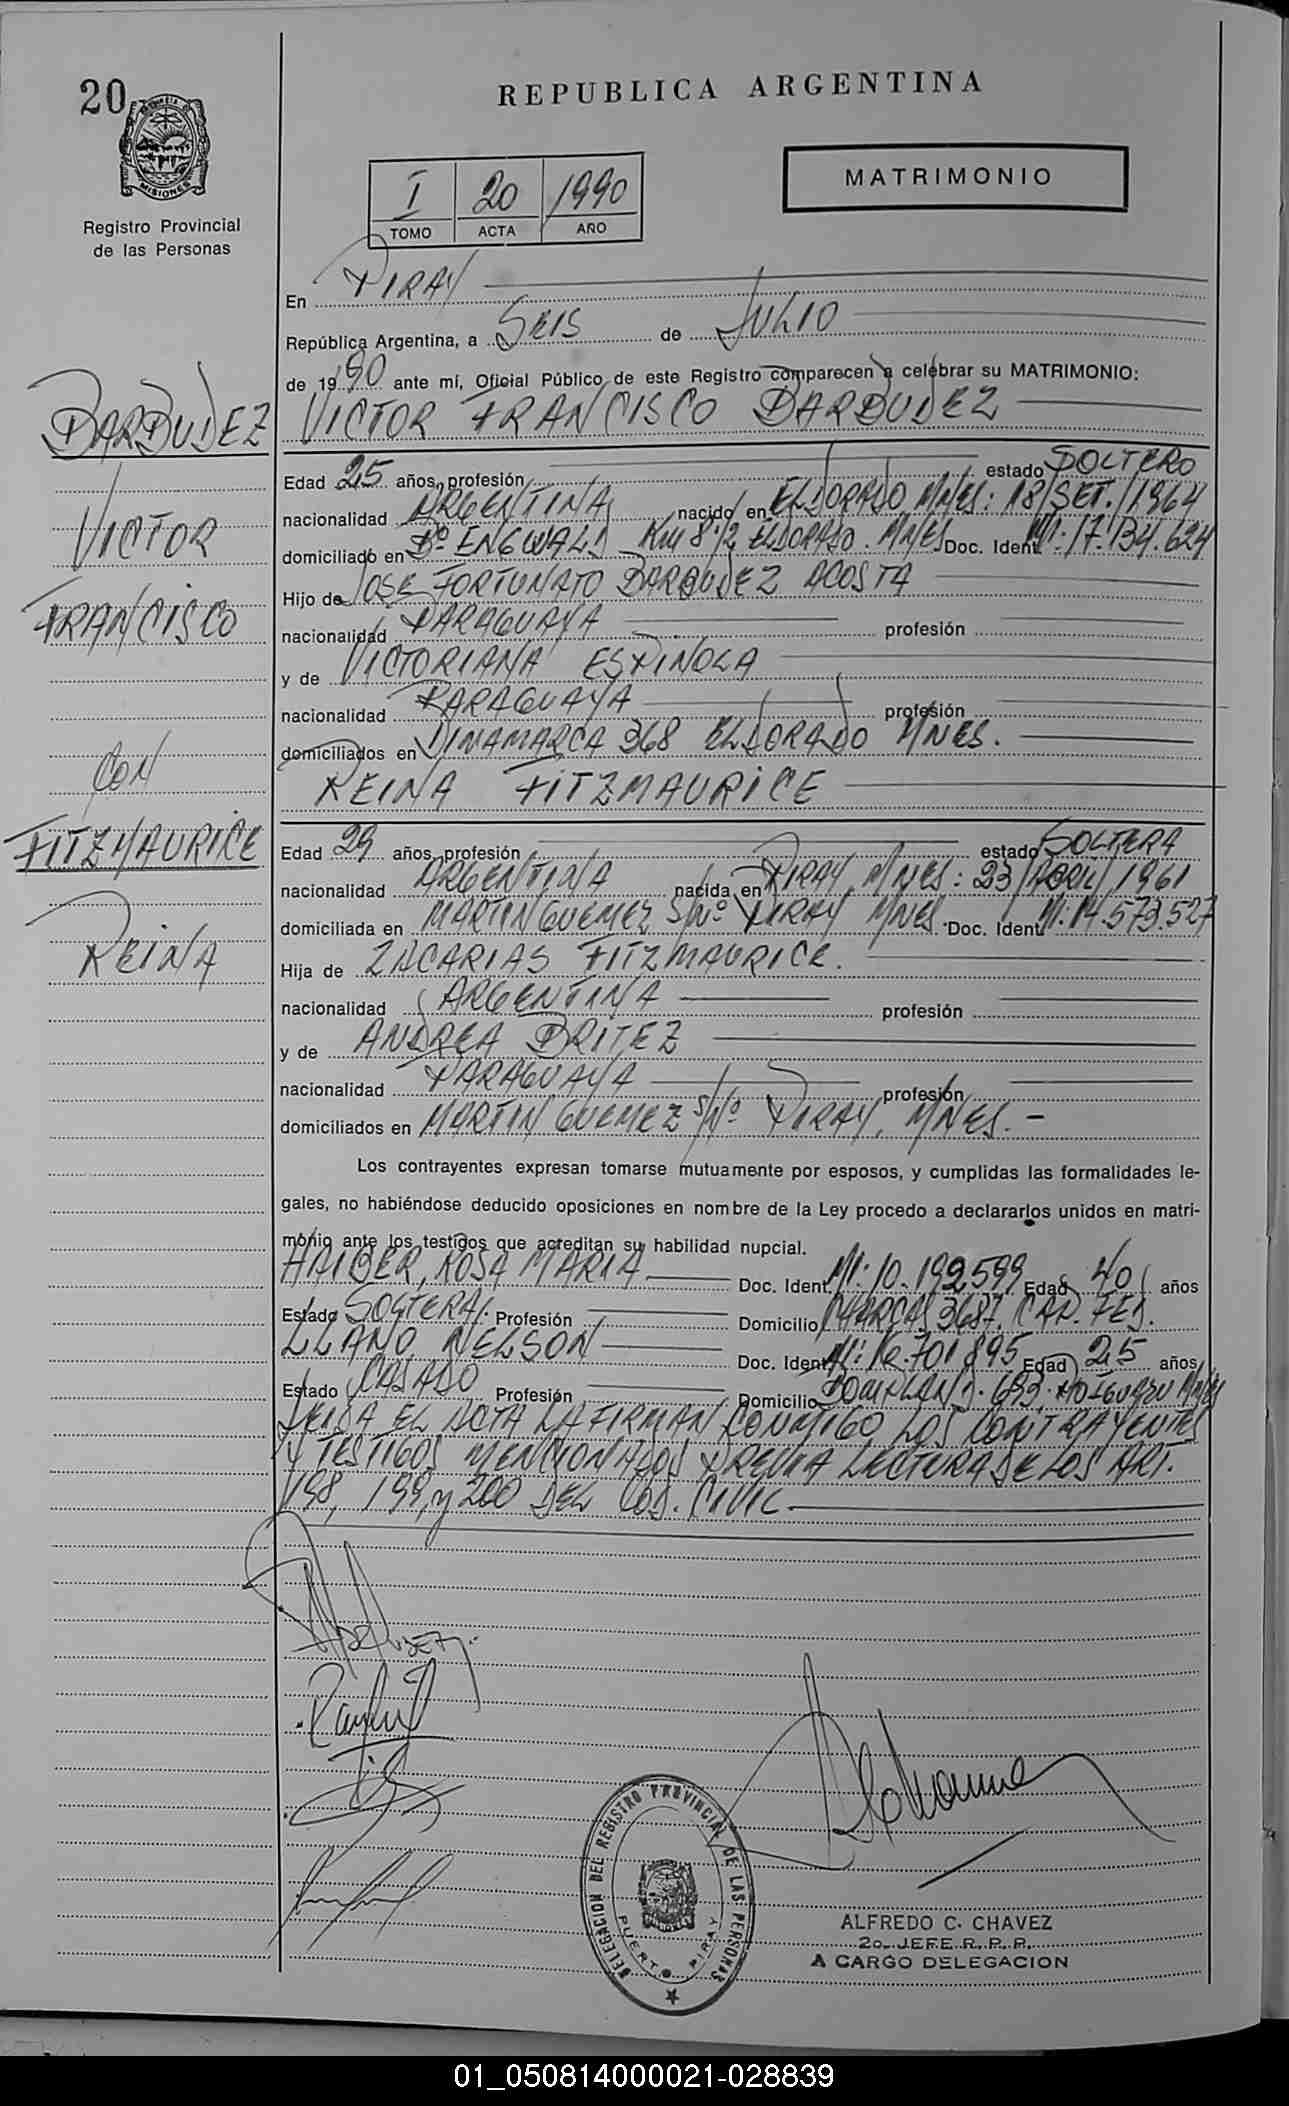 20
REPUBLICA ARGENTINA
MISIONES
Registro Provincial
de las Personas
I 20 1990
TOMO ACTA AÑO
MATRIMONIO
En PIRAY
República Argentina, a SEIS de JULIO
de 1990 ante mí, Oficial Público de este Registro comparecen a celebrar su MATRIMONIO:
VICTOR FRANCISCO BARBUDEZ
BARBUDEZ
VICTOR
FRANCISCO
CON
FITZMAURICE
REINA
Edad 25 años, profesión estado SOLTERO
nacionalidad ARGENTINA nacido en ELDORADO MNES: 18/SET./1964
domiciliado en Bº ENGWALD Km 8 1/2 ELDORADO. MNES Doc. Ident. M: 17.134.624
Hijo de JOSE FORTUNATO BARBUDEZ ACOSTA
nacionalidad PARAGUAYA profesión
y de VICTORIANA ESPINOLA
nacionalidad PARAGUAYA profesión
domiciliados en DINAMARCA 368 ELDORADO MNES.
REINA FITZMAURICE
Edad 29 años, profesión estado SOLTERA
nacionalidad ARGENTINA nacida en PIRAY, MNES: 23/ABRIL/1961
domiciliada en MARTIN GUEMEZ S/Nº PIRAY MNES. Doc. Ident. M: 14.573.527
Hija de ZACARIAS FITZMAURICE.
nacionalidad ARGENTINA profesión
y de ANDREA BRITEZ
nacionalidad PARAGUAYA profesión
domiciliados en MARTIN GUEMEZ S/Nº PIRAY, MNES.-
Los contrayentes expresan tomarse mutuamente por esposos, y cumplidas las formalidades le-
gales, no habiéndose deducido oposiciones en nombre de la Ley procedo a declararlos unidos en matri-
monio ante los testigos que acreditan su habilidad nupcial.
HAIBER, ROSA MARIA Doc. Ident. M: 10.192.599 Edad 40 años
Estado SOLTERA. Profesión Domicilio CHARCAS 3687. CAP. FED.
LLANO NELSON Doc. Ident. Edad 25 años
Estado CASADO Profesión Domicilio
LEIDA EL ACTA LA FIRMAN CONMIGO LOS CONTRAYENTES
Y TESTIGOS MENCIONADOS PREVIA LECTURA DE LOS ART.
198, 199, y 200 DEL COD. CIVIL
BARBUDEZ
DELEGACION DEL REGISTRO PROVINCIAL DE LAS PERSONAS
PUERTO PIRAY
ALFREDO C. CHAVEZ
2o. JEFE R. P. P.
A CARGO DELEGACION
01_050814000021-028839